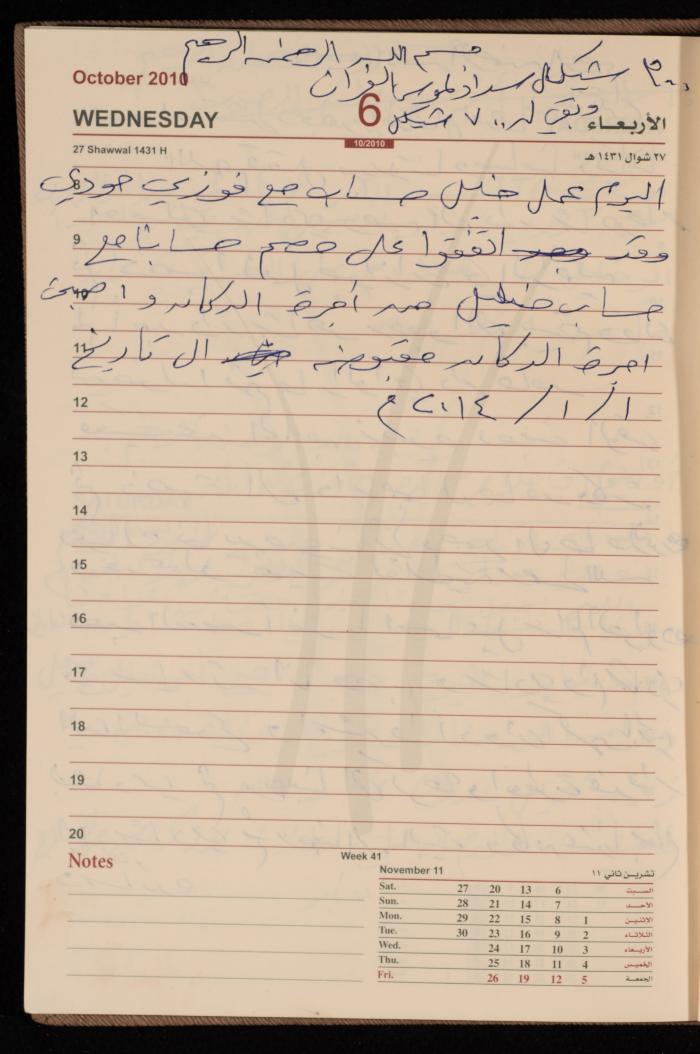 بسم الله الرحمن الرحيم
October 2010
٣٠٠٠ شيكل سداد لموسى الفران
WEDNESDAY
6
وبقي له ٧٠٠ شيكل
الأربعاء
27 Shawwal 1431 H
10/2010
٢٧ شوال ١٤٣١ هـ
8 اليوم عمل خليل حساب مع فوزي جودي
9 وقد اتفقوا على خصم حسابنا مع
10 حساب خليل من أجرة الدكان و اصبحت
11 اجرة الدكان مقبوضه الى تاريخ
12 ١ / ١ / ٢٠١٤ م
13
14
15
16
17
18
19
20
Notes
Week 41
November 11 تشرين ثاني ١١
Sat. 27 20 13 6 السبت
Sun. 28 21 14 7 الأحد
Mon. 29 22 15 8 1 الاثنين
Tue. 30 23 16 9 2 الثلاثاء
Wed. 24 17 10 3 الأربعاء
Thu. 25 18 11 4 الخميس
Fri. 26 19 12 5 الجمعة